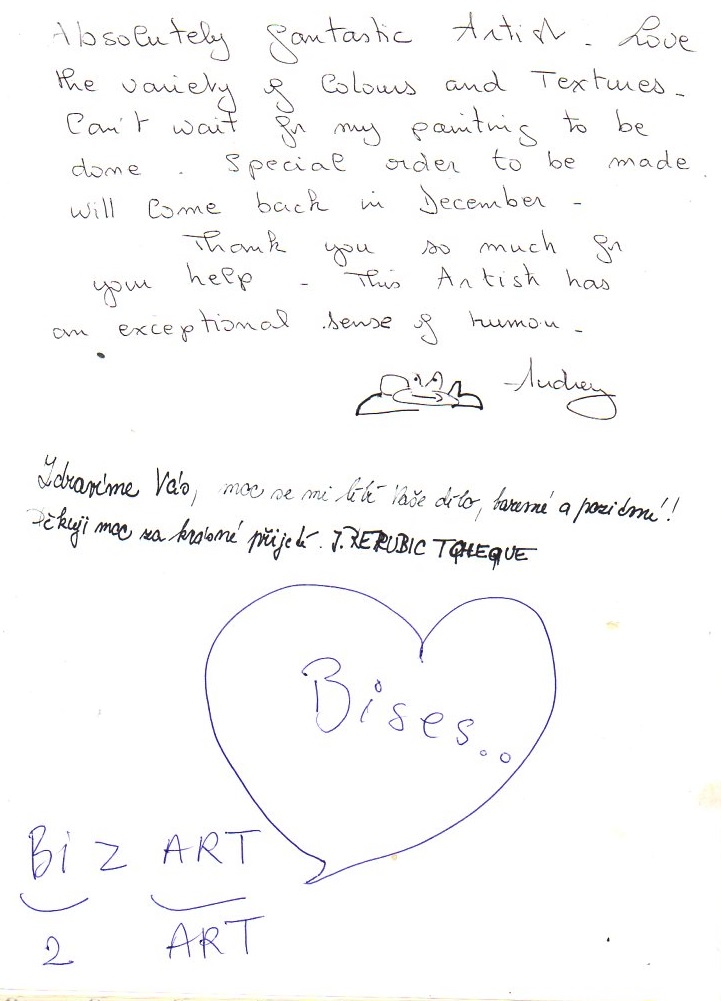 Absolutely fantastic Artist. Love
the variety of Colours and Textures -
Can't wait for my painitng to be
done. Special order to be made.
will Come back in December -
Thank you so much for
your help - This Artist has
an exceptional sense of humour -
Audrey
Zdravíme Vás, moc se mi líbí Vaše dílo, barevné a pozitivní!
Děkuji moc za krásné přijetí. J. REPUBIC TCHEQUE
Bises...
Bi Z ART
2 ART